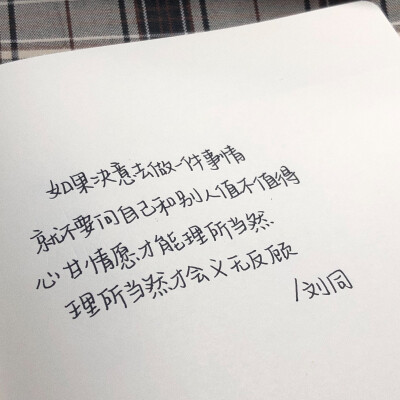 如果决意去做一件事情
就不要问自己和别人值不值得
心甘情愿才能理所当然
理所当然才会义无反顾
/刘同